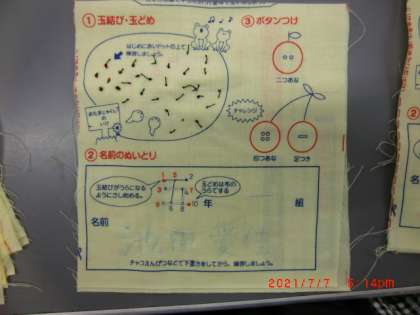 ①玉結び・玉どめ
はじめにあいドットの上で
練習しましょう。
おたまじゃくしの
いけ
③ボタンつけ
二つあな
チャレンジ
四つあな
足つき
②名前のぬいとり
玉結びがうらになる
ようにさし始める。
玉どめは布の
うらでする
年
組
名前
チャコえんぴつなどで下書きをしてから、練習しましょう。
2021/7/7 5:14pm